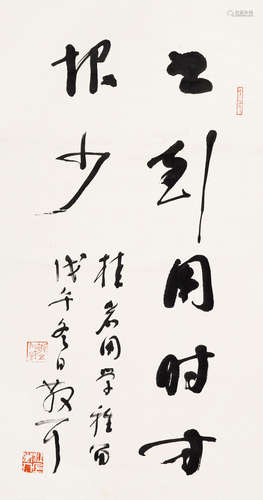 书到用时方
恨少
桂同学雅留
戊午冬日散耳